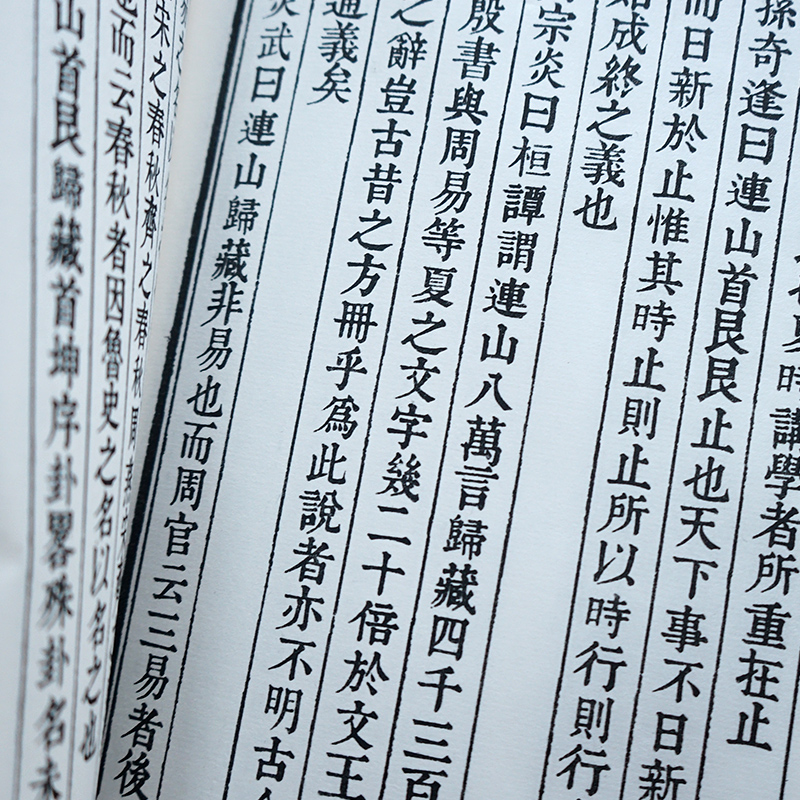 孫奇逢曰連山首艮艮止也天下事不日新
而日新於止惟其時止則止所以時行則行
始成終之義也
宗炎曰桓譚謂連山八萬言歸藏四千三百
殷書與周易等夏之文字幾二十倍於文王
之辭豈古昔之方冊乎為此說者亦不明古
通義矣
炎武曰連山歸藏非易也而周官云三易者後
宋之春秋齊之春秋周
也而云春秋者因魯史之名以名之也
山首艮歸藏首坤序卦畧殊卦名未
時講學者所重在止